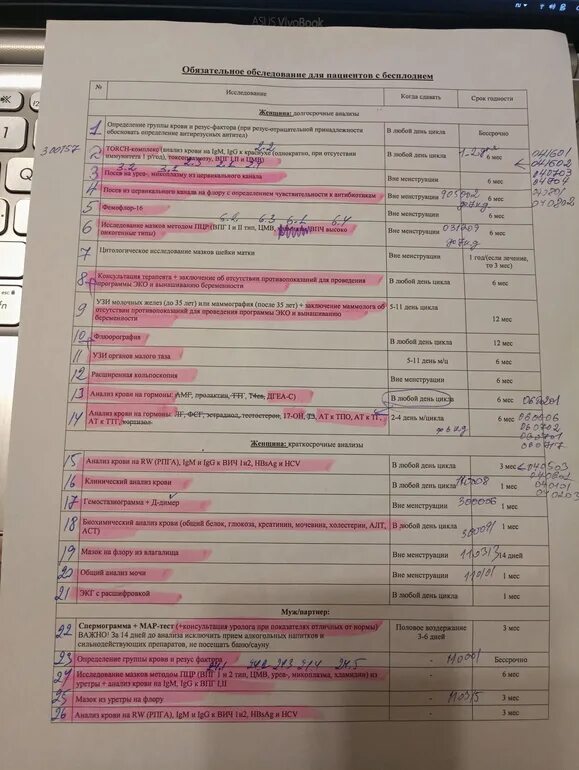 ASUS VivoBook
Обязательное обследование для пациентов с бесплодием
№ Исследование Когда сдавать Срок годности
Женщина: долгосрочные анализы
1 Определение группы крови и резус-фактора (при резус-отрицательной принадлежности
обосновать определение антирезусных антител) В любой день цикла Бессрочно
300157
2 TORCH-комплекс (анализ крови на IgM, IgG к краснухе (однократно, при отсутствии
иммунитета 1 р/год), токсоплазмозу, ВПГ I,II и ЦМВ) В любой день цикла 6 мес
041601
041602
3 Посев на уреа-, микоплазму из цервикального канала Вне менструации 6 мес
040703
4 Посев из цервикального канала на флору с определением чувствительности к антибиотикам Вне менструации 6 мес
5 Фемофлор-16 Вне менструации 6 мес
040802
6 Исследование мазков методом ПЦР (ВПГ I и II тип, ЦМВ, ВПЧ высоко
онкогенные типы) Вне менструации 6 мес
7 Цитологическое исследование мазков шейки матки Вне менструации 1 год/(если лечение,
то 3 мес)
8 Консультация терапевта + заключение об отсутствии противопоказаний для проведения
программы ЭКО и вынашиванию беременности В любой день цикла 6 мес
9 УЗИ молочных желез (до 35 лет) или маммография (после 35 лет) + заключение маммолога об
отсутствии противопоказаний для проведения программы ЭКО и вынашиванию
беременности 5-11 день цикла 12 мес
10 Флюорография В любой день цикла 12 мес
11 УЗИ органов малого таза 5-11 день м/ц 6 мес
12 Расширенная кольпоскопия Вне менструации 6 мес
13 Анализ крови на гормоны: АМГ, пролактин, ТТГ, Т4св, ДГЕА-С) В любой день цикла 6 мес
14 Анализ крови на гормоны: ЛГ, ФСГ, эстрадиол, тестостерон, 17-ОН, Т3, АТ к ТПО, АТ к ТГ,
АТ к ТТГ, кортизол 2-4 день м/цикла 6 мес
060702
Женщина: краткосрочные анализы
15 Анализ крови на RW (РПГА), IgM и IgG к ВИЧ 1и2, HBsAg и HCV В любой день цикла 3 мес
040503
16 Клинический анализ крови В любой день цикла 1 мес
040101
040203
17 Гемостазиограмма + Д-димер Вне менструации 300006 1 мес
18 Биохимический анализ крови (общий белок, глюкоза, креатинин, мочевина, холестерин, АЛТ,
АСТ) В любой день цикла 1 мес
19 Мазок на флору из влагалища Вне менструации 110313 14 дней
20 Общий анализ мочи Вне менструации 110101 1 мес
21 ЭКГ с расшифровкой В любой день цикла 1 мес
Муж/партнер:
22 Спермограмма + МАР-тест (+консультация уролога при показателях отличных от нормы)
ВАЖНО! За 14 дней до анализа исключить прием алкогольных напитков и
сильнодействующих препаратов, не посещать баню/сауну Половое воздержание
3-6 дней 3 мес
23 Определение группы крови и резус фактора - 110001 Бессрочно
24.1 24.2 24.3 24.4 24.5
24 Исследование мазков методом ПЦР (ВПГ 1 и 2 тип, ЦМВ, уреа-, микоплазма, хламидии) из
уретры + анализ крови на IgM, IgG к ВПГ I,II - 6 мес
25 Мазок из уретры на флору - 110315 6 мес
26 Анализ крови на RW (РПГА), IgM и IgG к ВИЧ 1и2, HBsAg и HCV - 3 мес